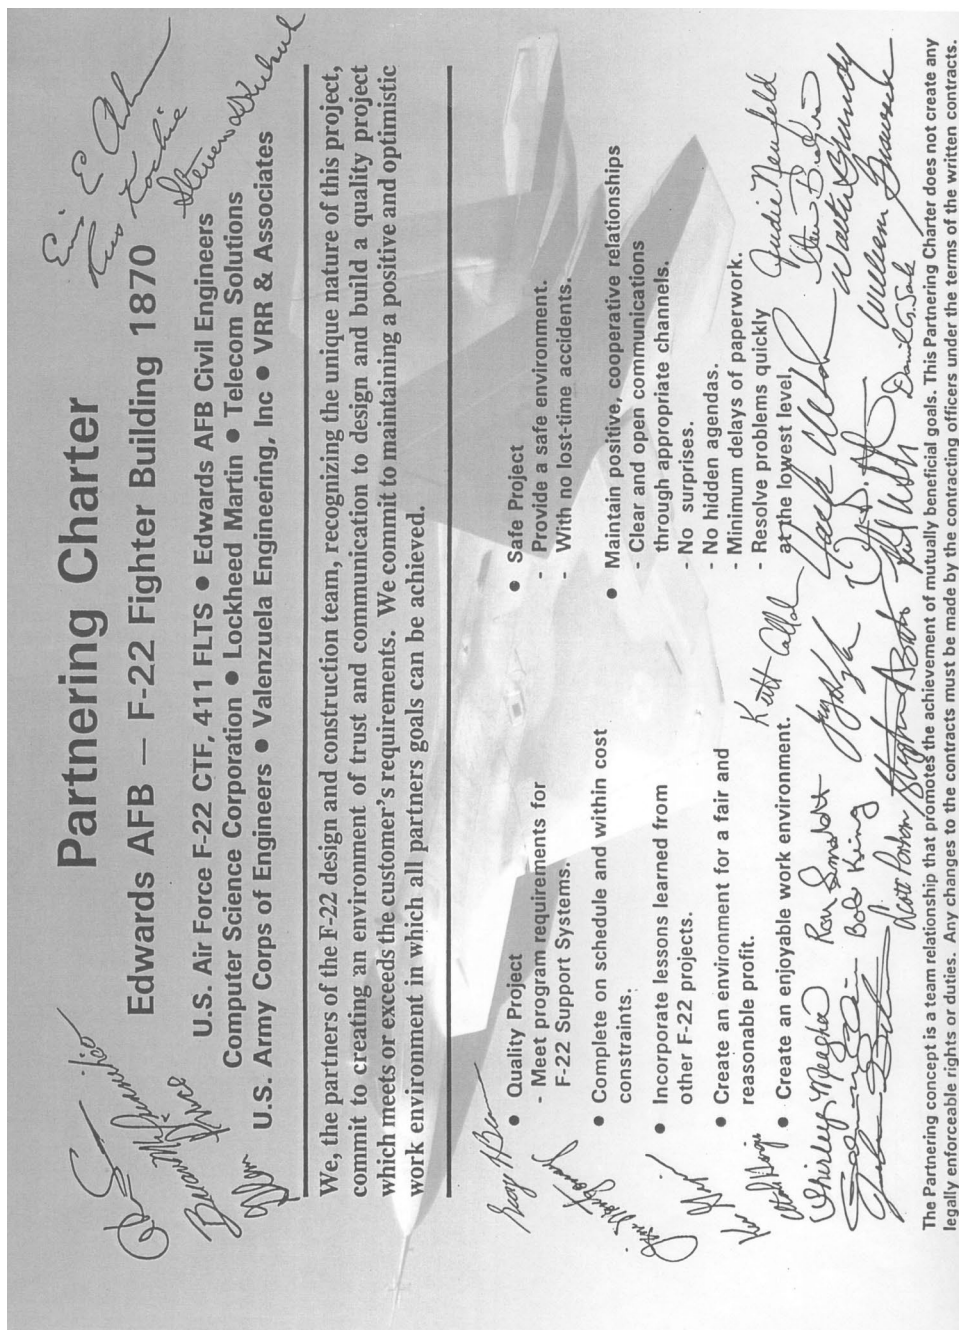 Partnering Charter
Edwards AFB — F-22 Fighter Building 1870
U.S. Air Force F-22 CTF, 411 FLTS ● Edwards AFB Civil Engineers
Computer Science Corporation ● Lockheed Martin ● Telecom Solutions
U.S. Army Corps of Engineers ● Valenzuela Engineering, Inc ● VRR & Associates
We, the partners of the F-22 design and construction team, recognizing the unique nature of this project,
commit to creating an environment of trust and communication to design and build a quality project
which meets or exceeds the customer's requirements. We commit to maintaining a positive and optimistic
work environment in which all partners goals can be achieved.
● Quality Project
- Meet program requirements for
F-22 Support Systems.
● Complete on schedule and within cost
constraints.
● Incorporate lessons learned from
other F-22 projects.
● Create an environment for a fair and
reasonable profit.
● Create an enjoyable work environment.
● Safe Project
- Provide a safe environment.
- With no lost-time accidents.
● Maintain positive, cooperative relationships
- Clear and open communications
through appropriate channels.
- No surprises.
- No hidden agendas.
- Minimum delays of paperwork.
- Resolve problems quickly
at the lowest level.
Judie Neufeld
Shirley Meeghan
Bob King
The Partnering concept is a team relationship that promotes the achievement of mutually beneficial goals. This Partnering Charter does not create any
legally enforceable rights or duties. Any changes to the contracts must be made by the contracting officers under the terms of the written contracts.